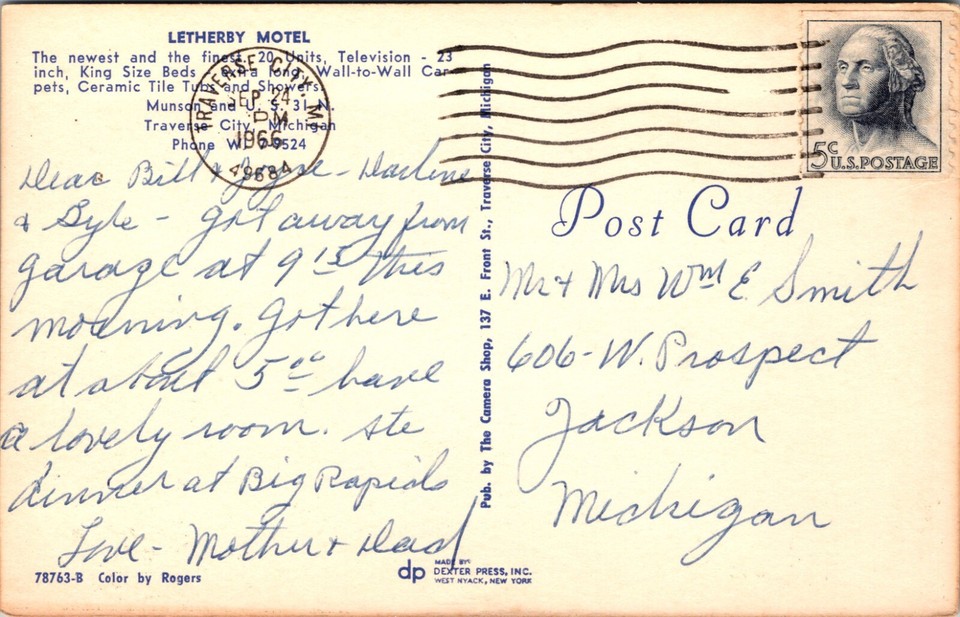 LETHERBY MOTEL
The newest and the finest 20 Units, Television - 23
inch, King Size Beds extra long, Wall-to-Wall Car-
pets, Ceramic Tile Tubs and Showers.
Munson and U. S. 31 N.
Traverse City, Michigan
Phone
TRAVERSE CITY, M
SEP 24
PM
1966
49684
5c U.S. POSTAGE
Dear Bill & Joyse - Darlene
& - Got away from
garage at 9 15 this
morning. Got here
at about 5 00 have
a lovely room. Ate
dinner at Big Rapids
Love - Mother & Dad
Pub. by The Camera Shop, 137 E. Front St., Traverse City, Michigan
Post Card
Mr & Mrs Wm E Smith
606 - W. Prospect
Jackson
Michigan
78763-B Color by Rogers
dp MADE BY
DEXTER PRESS, INC.
WEST NYACK, NEW YORK